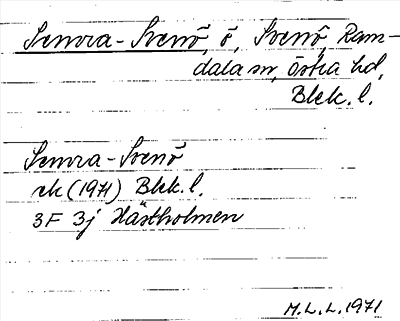 Senora-Svenö, ö, Svenö, Ram-
dala sn, östra hd,
Blek. l.
Senora-Svenö
ek (1971) Blek. l.
3F 3j Hästholmen
M.L.L. 1971